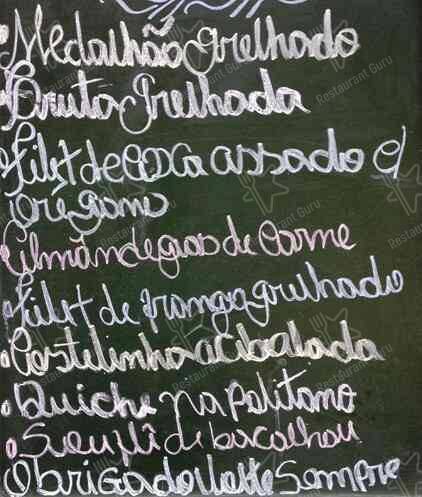 Medalhão Grelhado
Truta Grelhada
Filet de assado c/
oregano
de Carne
Filet de frango grelhado
Costelinha acebolada
Quiche napolitano
Suflê de bacalhau
Obrigado Volte Sempre